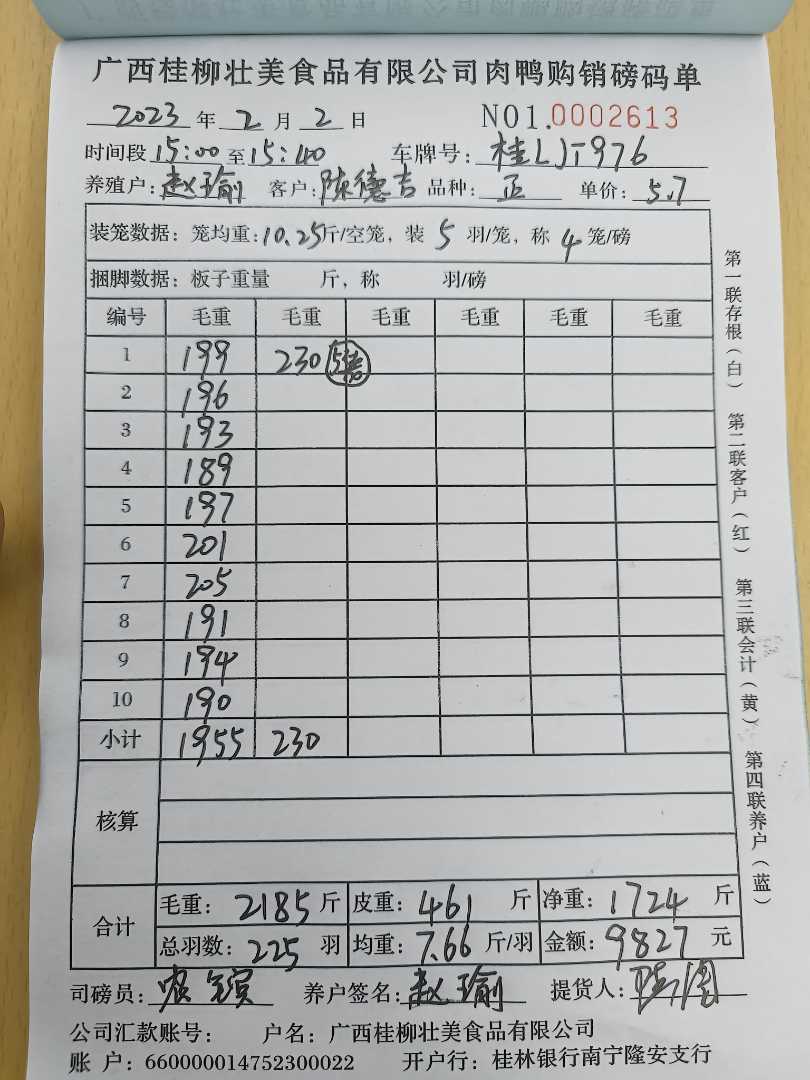 广西桂柳壮美食品有限公司肉鸭购销磅码单
2023 年 2 月 2 日 NO1.0002613
时间段 15:00 至 15:40 车牌号: 桂LJT976
养殖户: 赵瑜 客户: 陈德吉 品种: 正 单价: 5.7
装笼数据: 笼均重: 10.25斤/空笼, 装 5 羽/笼, 称 4 笼/磅
捆脚数据: 板子重量 斤, 称 羽/磅
编号 毛重 毛重 毛重 毛重 毛重 毛重
1 199 230 5笼
2 196
3 193
4 189
5 197
6 201
7 205
8 191
9 194
10 190
小计 1955 230
核算
合计 毛重: 2185 斤 皮重: 461 斤 净重: 1724 斤
总羽数: 225 羽 均重: 7.66 斤/羽 金额: 9827 元
司磅员: 养户签名: 赵瑜 提货人:
公司汇款账号: 户名: 广西桂柳壮美食品有限公司
账 户: 660000014752300022 开户行: 桂林银行南宁隆安支行
第一联存根(白) 第二联客户(红) 第三联会计(黄) 第四联养户(蓝)